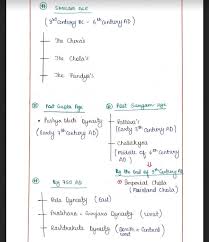 SANGAM AGE
(3rd Century BC - 6th Century AD)
The Chera's
The Chola's
The Pandya's
Post Gupta Age
Pushya bhuti Dynasty
(Early 7th Century AD)
Post Sangam Age
Pallava's
(Early 7th Century AD)
Chalukyas
(Middle of 6th Century AD)
By the End of 9th Century AD
Imperial Chola
(Mainland Chola)
By 750 AD
Pala Dynasty (East)
Pratihara - Gurjara Dynasty (West)
Rashtrakuta Dynasty (South + Central West)